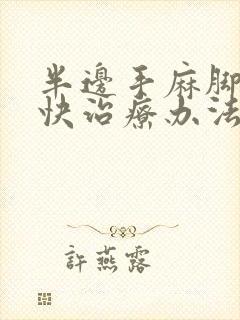 半邊手麻脚
快治療办法
許燕露